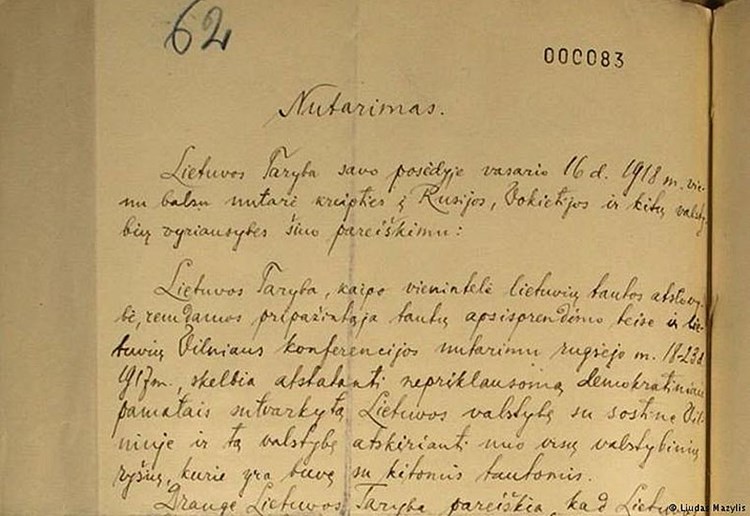 62
000083
Nutarimas.
Lietuvos Taryba savo posėdyje vasario 16 d. 1918 m. vie-
nu balsu nutarė kreipties į Rusijos, Vokietijos ir kitų valsty-
bių vyriausybes šiuo pareiškimu:
Lietuvos Taryba, kaipo vienintelė lietuvių tautos atstovy-
bė, remdamos pripažintąja tautų apsisprendimo teise ir lie-
tuvių Vilniaus konferencijos nutarimu rugsėjo m. 18-23 d.
1917 m., skelbia atstatanti nepriklausomą demokratiniais
pamatais sutvarkytą Lietuvos valstybę su sostine Vil-
niuje ir tą valstybę atskirianti nuo visų valstybinių
ryšių, kurie yra buvę su kitomis tautomis.
Drauge Lietuvos Taryba pareiškia, kad Lietuvos
© Liudas Mazylis